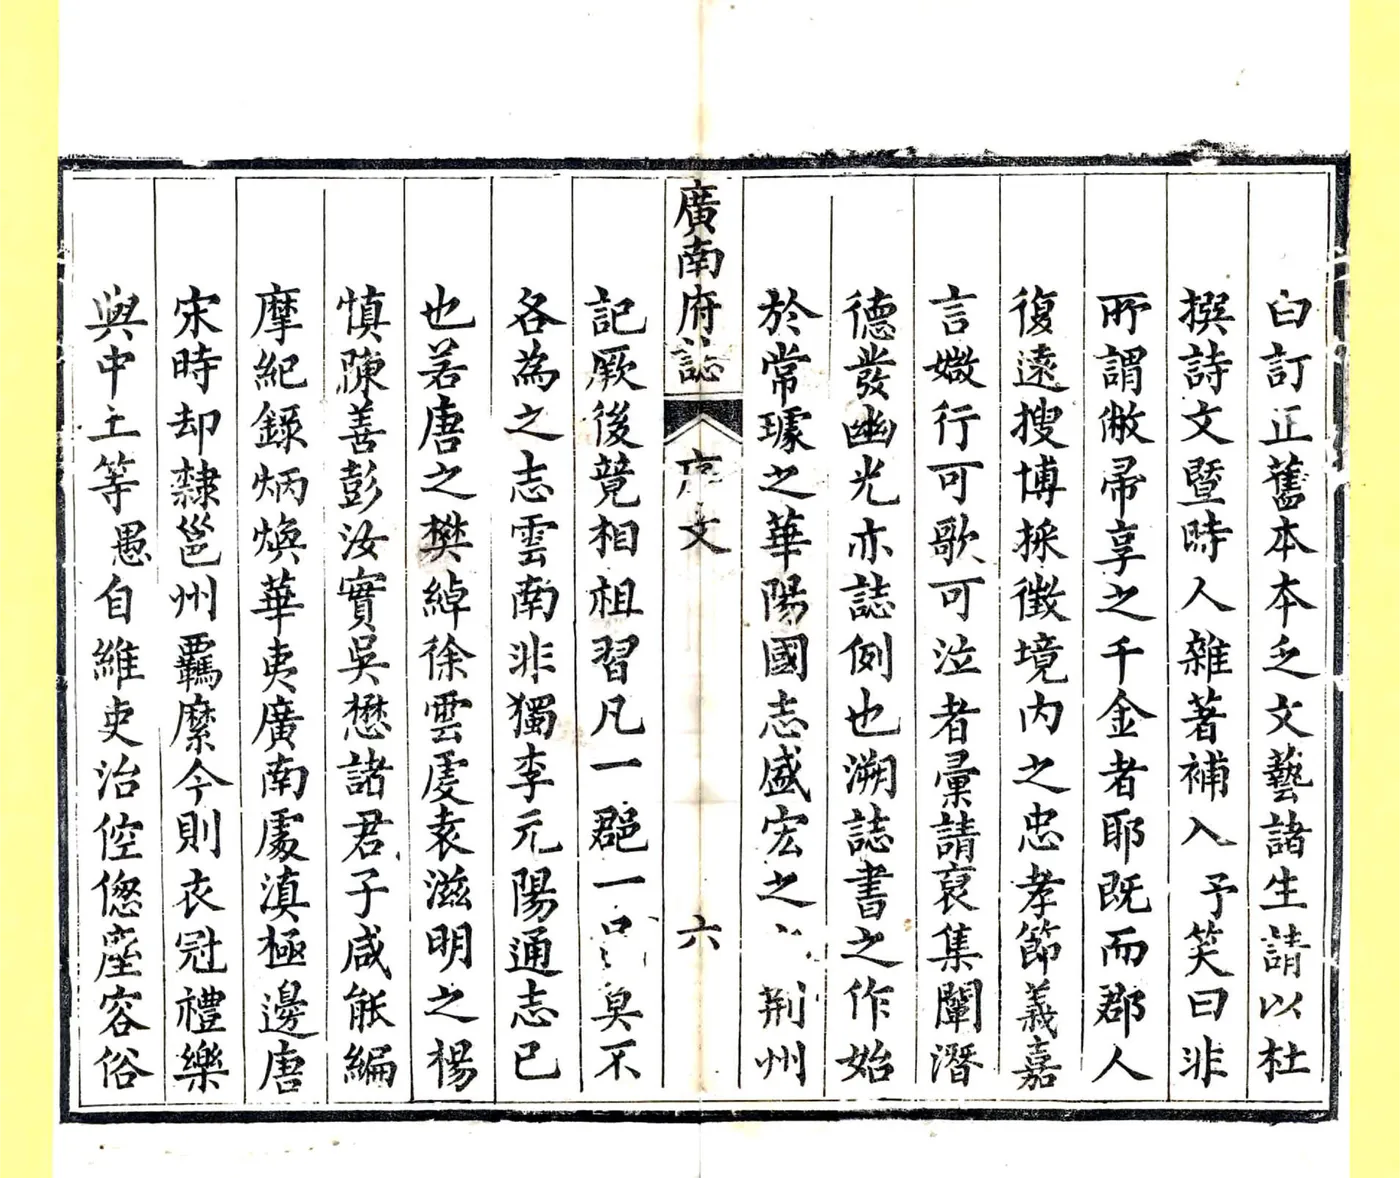 臼訂正舊本本乏文藝諸生請以杜
撰詩文暨時人雜著補入予笑曰非
所謂敝帚享之千金者耶既而郡人
復遠搜博採徵境内之忠孝節義嘉
言媺行可歌可泣者彙請裒集闡潛
德發幽光亦誌例也溯誌書之作始
於常璩之華陽國志盛宏之荆州
廣南府誌
序文
六
記厥後競相祖習凡一郡一莫不
各為之志雲南非獨李元陽通志已
也若唐之樊綽徐雲虔袁滋明之楊
慎陳善彭汝實吳懋諸君子咸能編
摩紀錄炳煥華夷廣南處滇極邊唐
宋時却隸邕州羈縻今則衣冠禮樂
與中土等愚自維吏治倥傯塵容俗